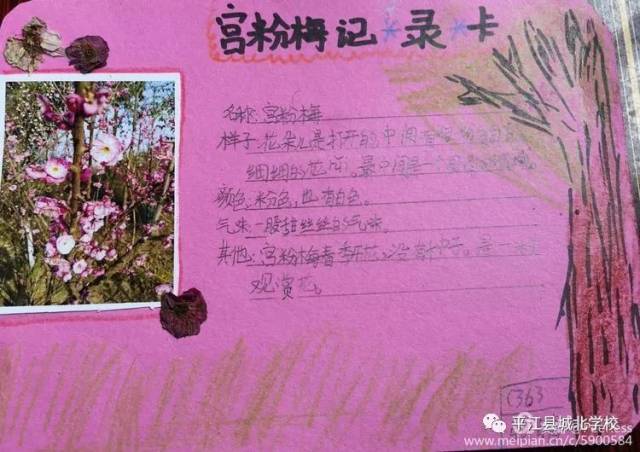 宫粉梅记录卡
名称:宫粉梅
样子:花朵儿是打开的,中间有
细细的花 最中间是一个
颜色:粉色,也有白色。
气味:一股甜丝丝的气味。
其他:宫粉梅春季开花,没有 是一
观赏花。
(363
平江县城北学校
www.meipian.cn/c/5900584